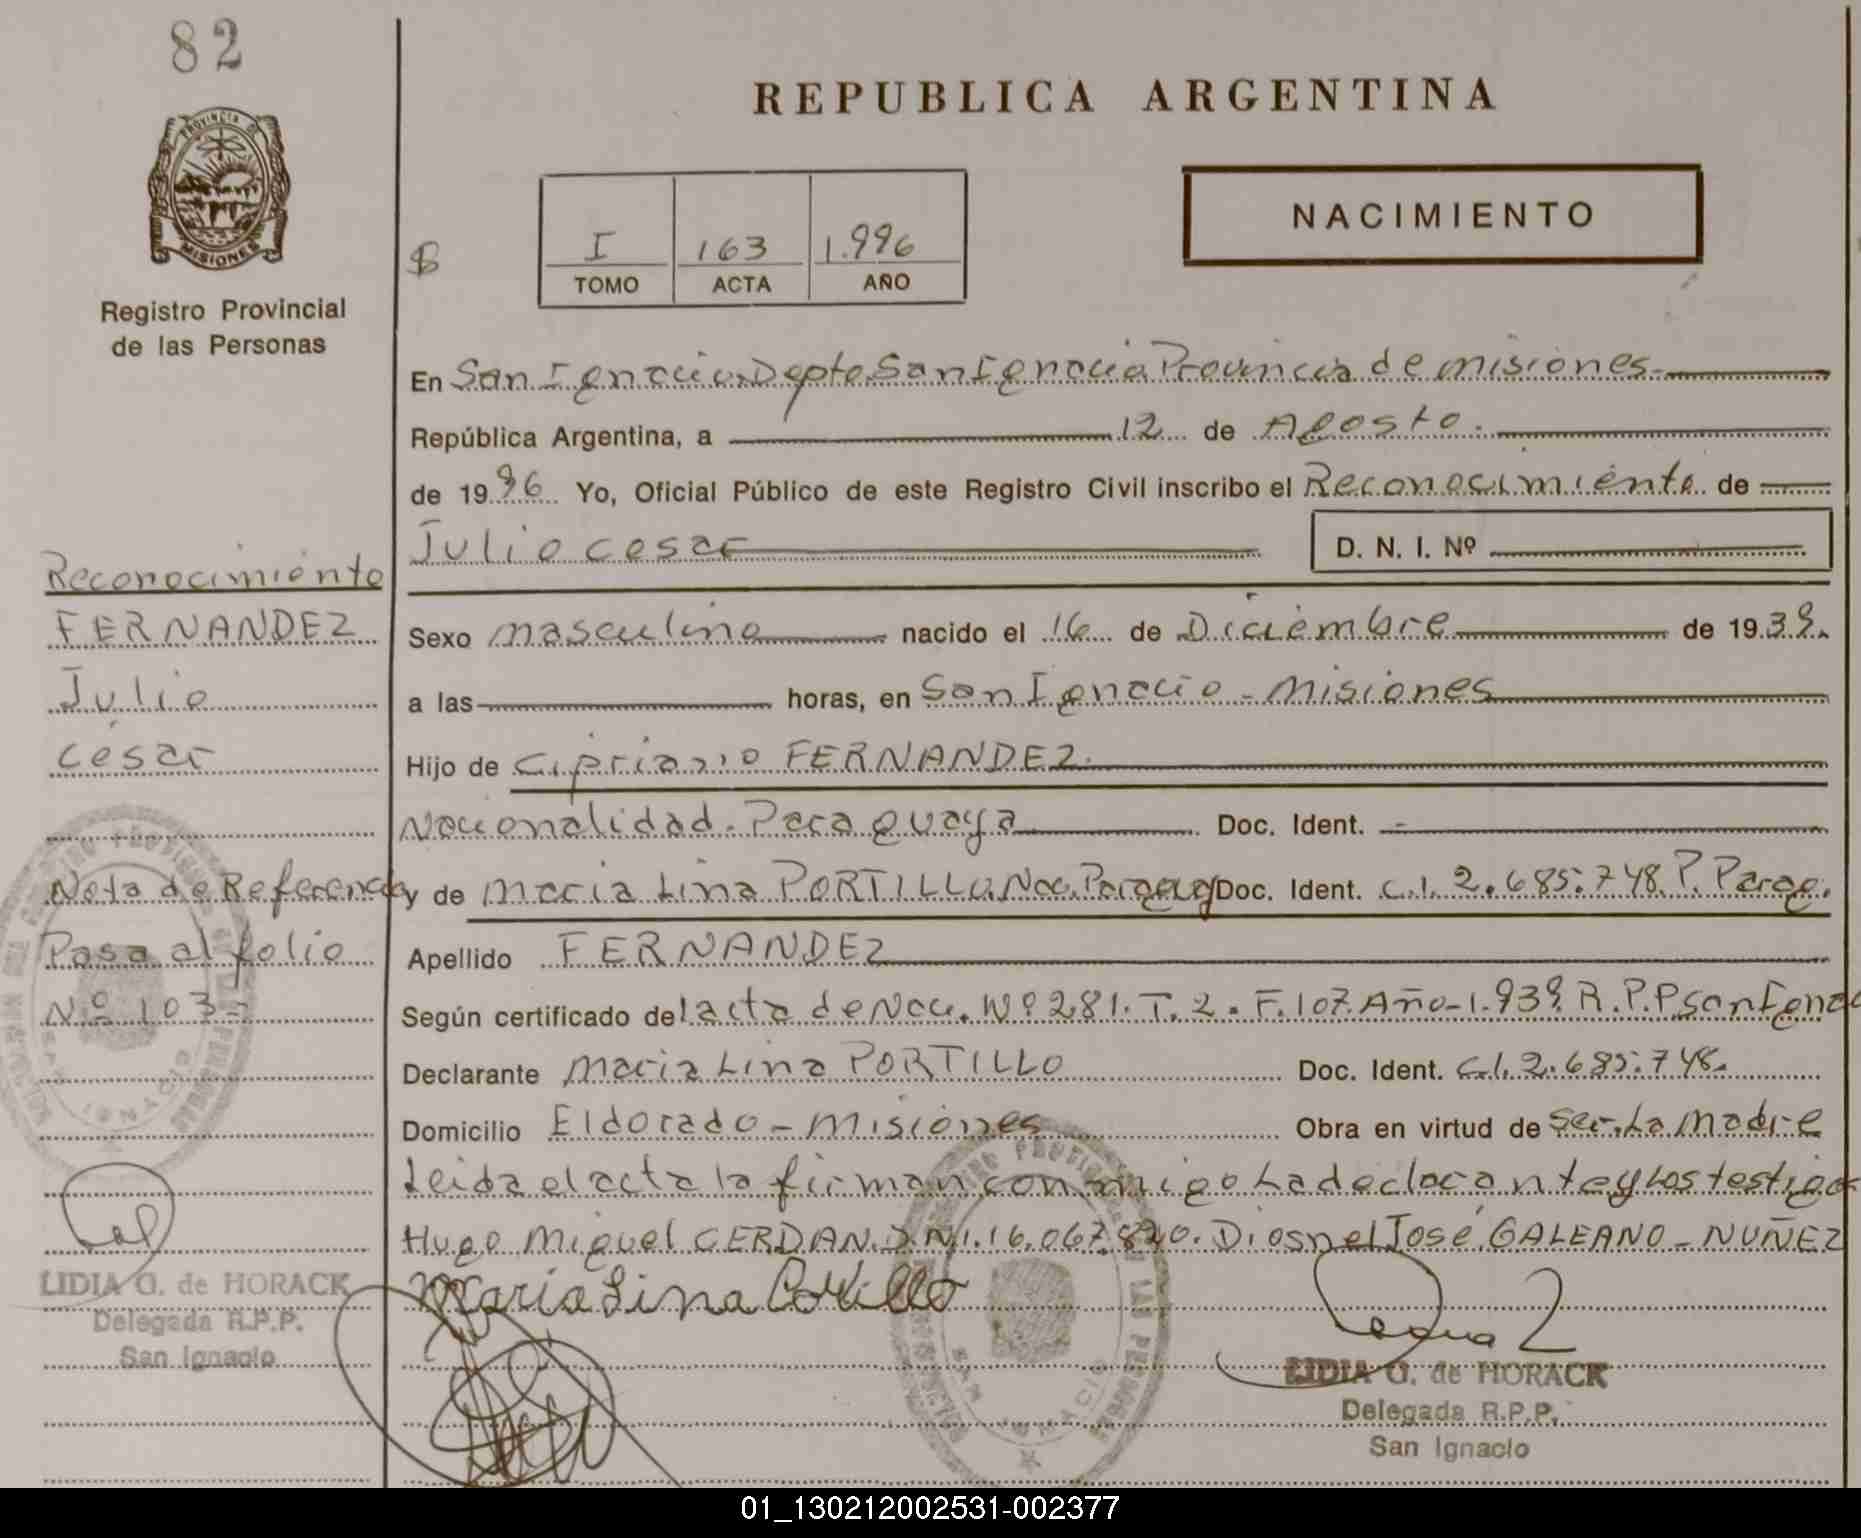 82
REPUBLICA ARGENTINA
PROVINCIA DE
MISIONES
Registro Provincial
de las Personas
I 163 1.996
TOMO ACTA AÑO
NACIMIENTO
En San Ignacio. Depto San Ignacio Provincia de misiones.
República Argentina, a 12 de Agosto.
de 1996 Yo, Oficial Público de este Registro Civil inscribo el Reconocimiento de
Julio cesar D. N. I. Nº
Reconocimiento
FERNANDEZ
Julio
cesar
Nota de Referencia
Pasa al folio
Nº 103-
LIDIA G. de HORACK
Delegada R.P.P.
San Ignacio
Sexo masculino nacido el 16 de Diciembre de 1939.
a las horas, en San Ignacio - misiones
Hijo de Cipriano FERNANDEZ.
Nacionalidad. Paraguaya. Doc. Ident. -
y de maria Lina PORTILLO. Nac. Paraguay Doc. Ident. C.I. 2.685.748. P. Parag.
Apellido FERNANDEZ
Según certificado del acta de Nac. Nº 281. T. 2. F. 107. Año-1.939. R.P.P. San Ignac
Declarante maria Lina PORTILLO Doc. Ident. C.I. 2.685.748.
Domicilio Eldorado - misiones Obra en virtud de Ser. La madre
Leida el acta la firman conmigo La declarante y Los testigos
Hugo miguel CERDAN. D.N.I. 16.067.820. Diosnel José GALEANO - NUÑEZ
Maria Lina Portillo
LIDIA G. de HORACK
Delegada R.P.P.
San Ignacio
01_130212002531-002377